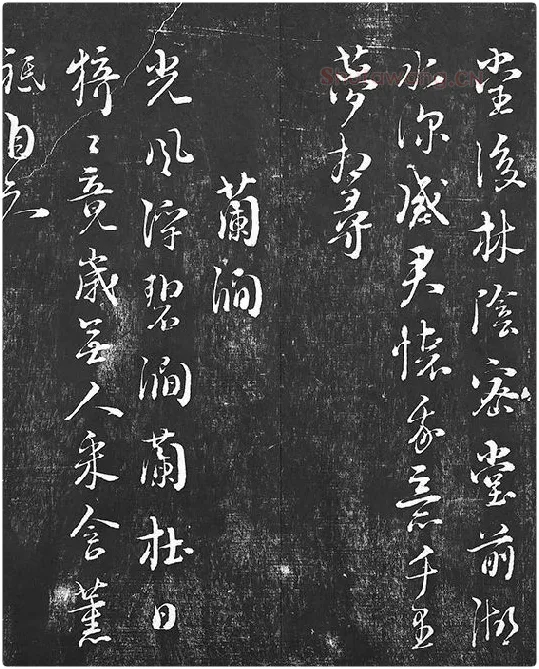 堂後林陰密堂前湖
水深感君懷我意千里
夢相尋
蘭澗
光風浮碧澗蘭杜日
猗〻竟歲無人采含薰
祗自知